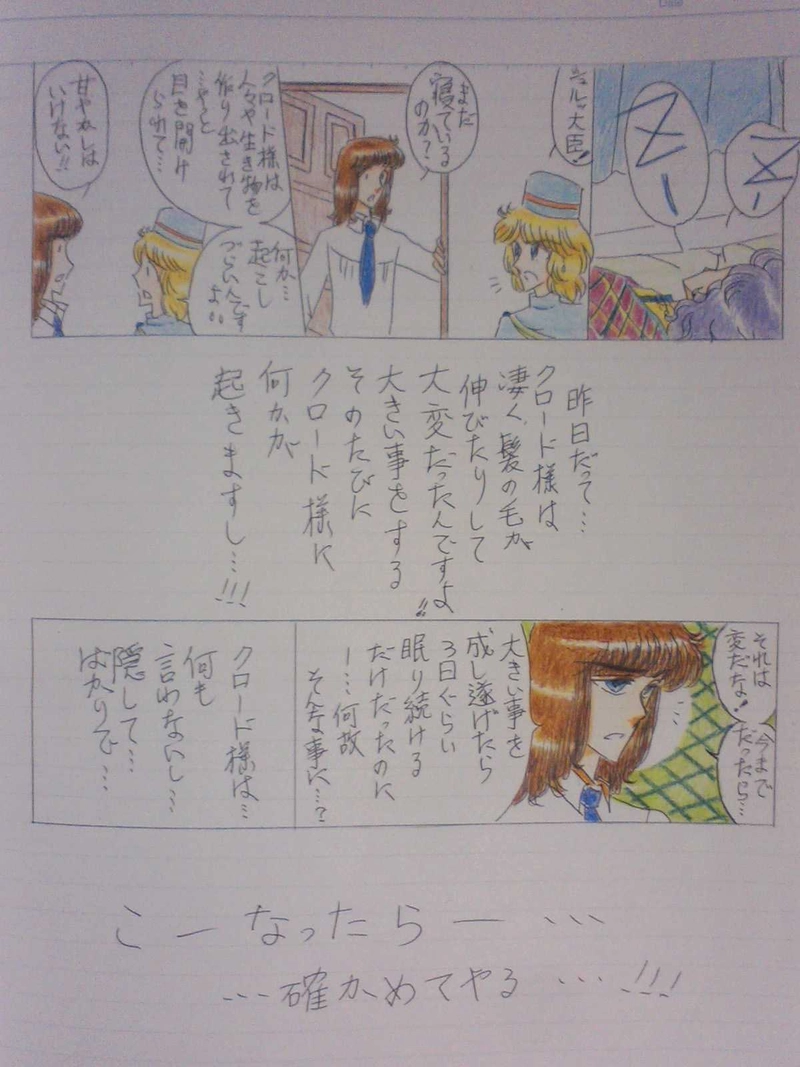 Date
Zー
Zー
シュルツ大臣!
まだ
寝ている
のか?
クロード様は
人々や生き物を
作り出されて
…やっと
目を開け
られて…
何か…
起こし
づらいんです
よ!!
甘やかしは
いけない!!
昨日だって…
クロード様は
凄く、髪の毛が
伸びたりして
大変だったんですよ!!
大きい事をする
そのたびに
クロード様に
何かが
起きますし…!!!
それは
変だな!
今まで
だったら…
大きい事を
成し遂げたら
3日ぐらい
眠り続ける
だけだったのに
ー…何故
そんな事に…?
クロード様は…
何も
言わないし…
隠して…
ばかりで…
こーなったらー…
…確かめてやる…!!!